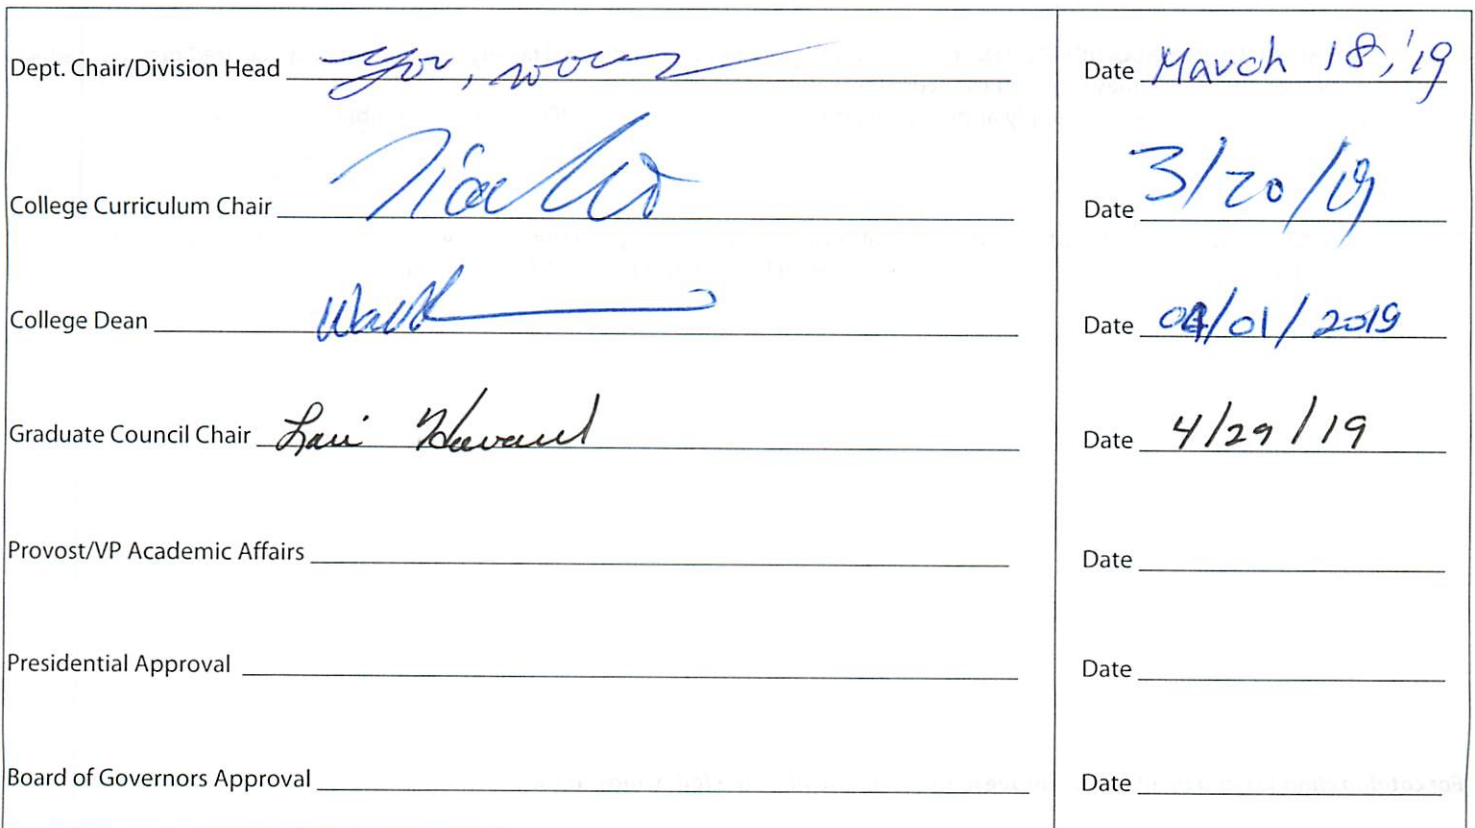 Dept. Chair/Division Head Date March 18, '19
College Curriculum Chair Date 3/20/19
College Dean Date 04/01/2019
Graduate Council Chair Lori Howard Date 4/29/19
Provost/VP Academic Affairs Date
Presidential Approval Date
Board of Governors Approval Date